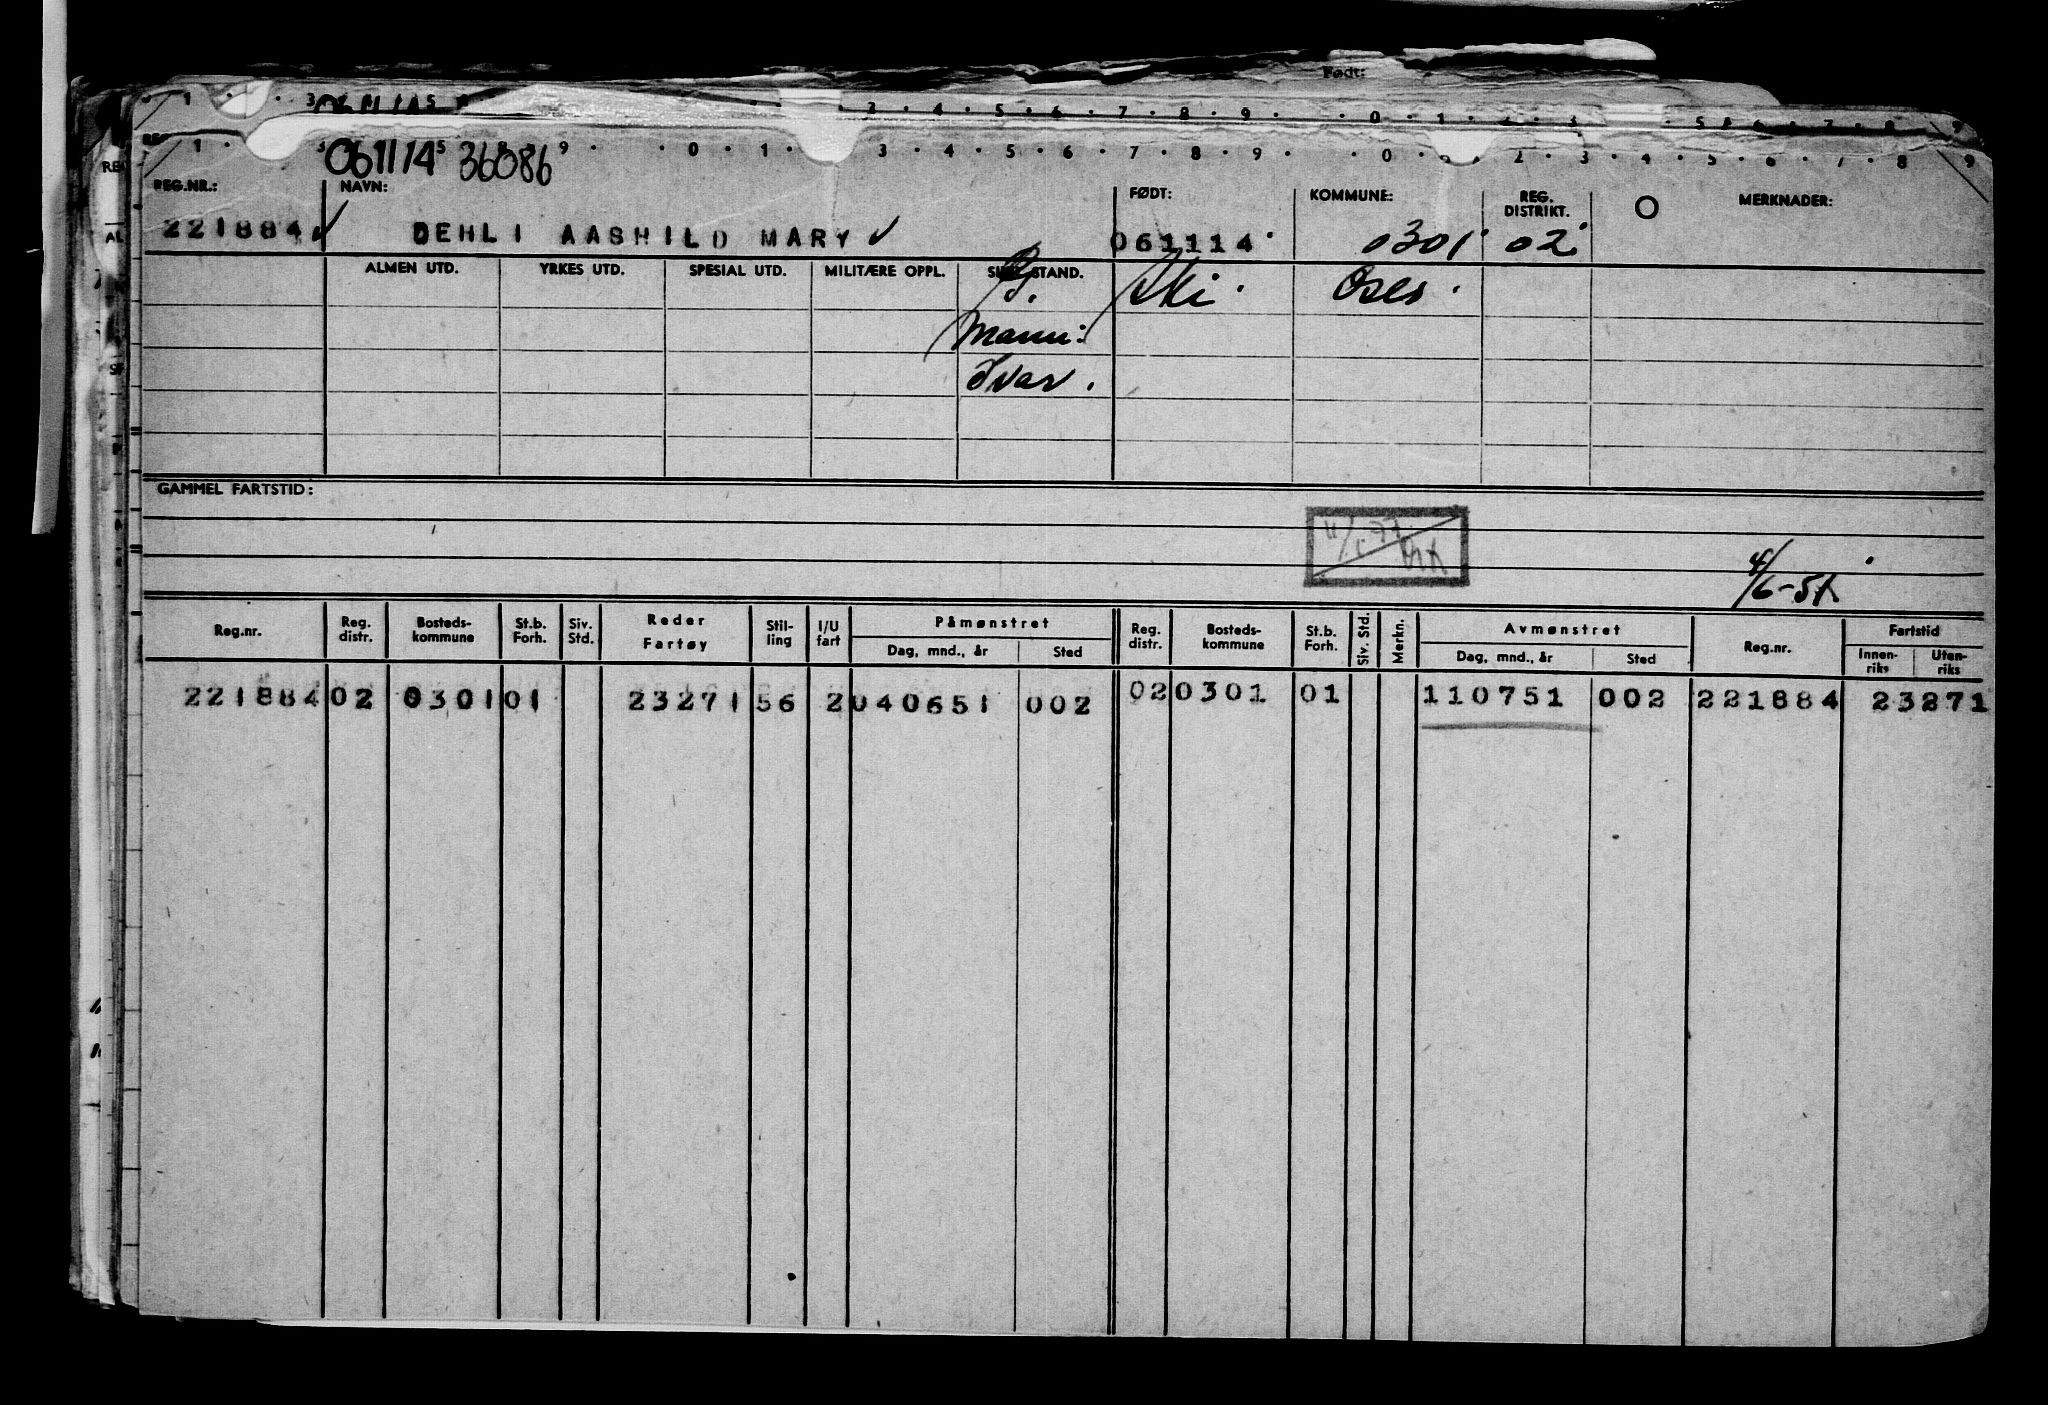 Født:
1 · 3 5 3 · 4 · 5 · 6 · 7 · 8 · 9 · · 0 · 1 · 2 · 3 · 5 6 · 7 · 8 9
061114 36086
1 · 9 · 0 · 1 · 3 · 4 · 5 · 6 · 7 · 8 · 9 · · 0 · 2 · 3 · 4 · 5 · 6 · 7 · 8 9
REG.NR.: NAVN: FØDT: KOMMUNE: REG. DISTRIKT. O MERKNADER:
221884 DEHLI AASHILD MARY 061114 0301 02
ALMEN UTD. YRKES UTD. SPESIAL UTD. MILITÆRE OPPL. STAND.
G. Ski. Oslo.
Mann:
Ivar.
GAMMEL FARTSTID:
4/6-51.
Reg.nr. Reg. distr. Bosteds-kommune St.b. Forh. Siv. Std. Reder Fartøy Stil-ling I/U fart Påmønstret Dag, mnd., år Sted Reg. distr. Bosteds-kommune St.b. Forh. Siv. Std. Merkn. Avmønstret Dag, mnd., år Sted Reg.nr. Fartstid Innen-riks Uten-riks
221884 02 0301 01 23271 56 2 040651 002 02 0301 01 110751 002 221884 23271